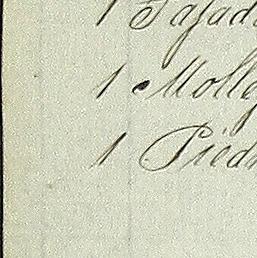 1 Tajad
1 Molle
1 Pied